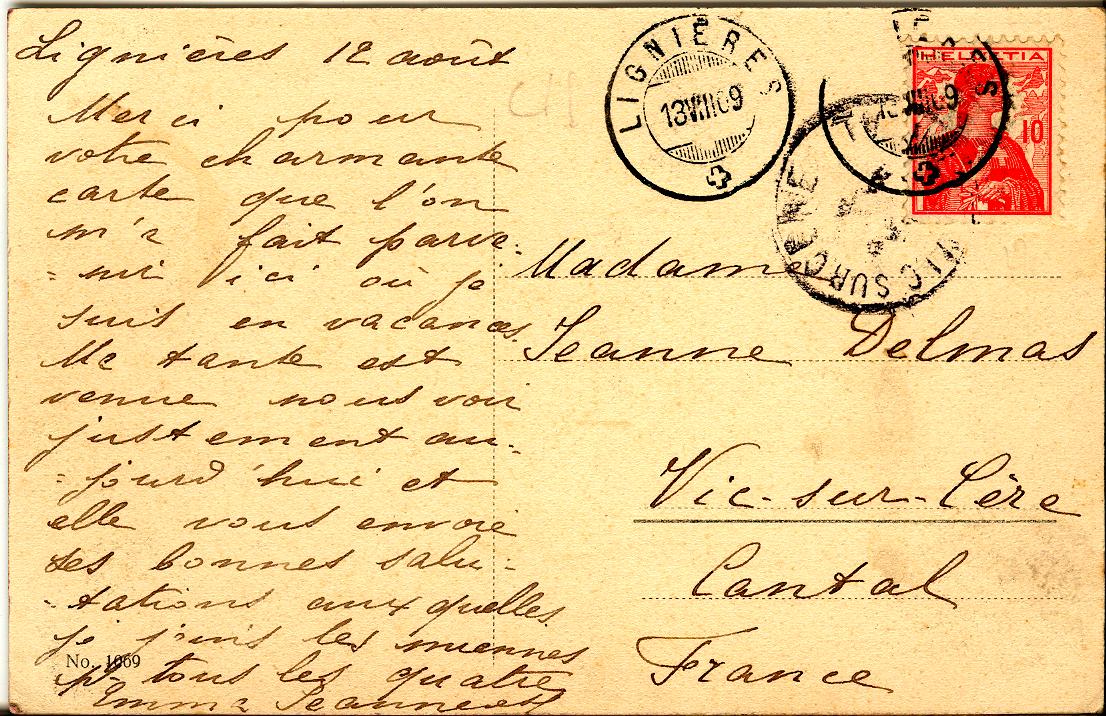 Lignières 12 août
Merci pour
votre charmante
carte que l'on
m'a fait parve-
-nir ici où je
suis en vacances.
Ma tante est
venue nous voir
justement au-
-jourd'hui et
elle vous envoie
ses bonnes salu-
-tations auxquelles
je joins les miennes
pr tous les quatre
Emma Jeanneret
No. 1069
LIGNIÈRES
13 VIII 09
HELVETIA
10
VIC SUR CERE
Madame
Jeanne Delmas
Vic-sur-Cère
Cantal
France